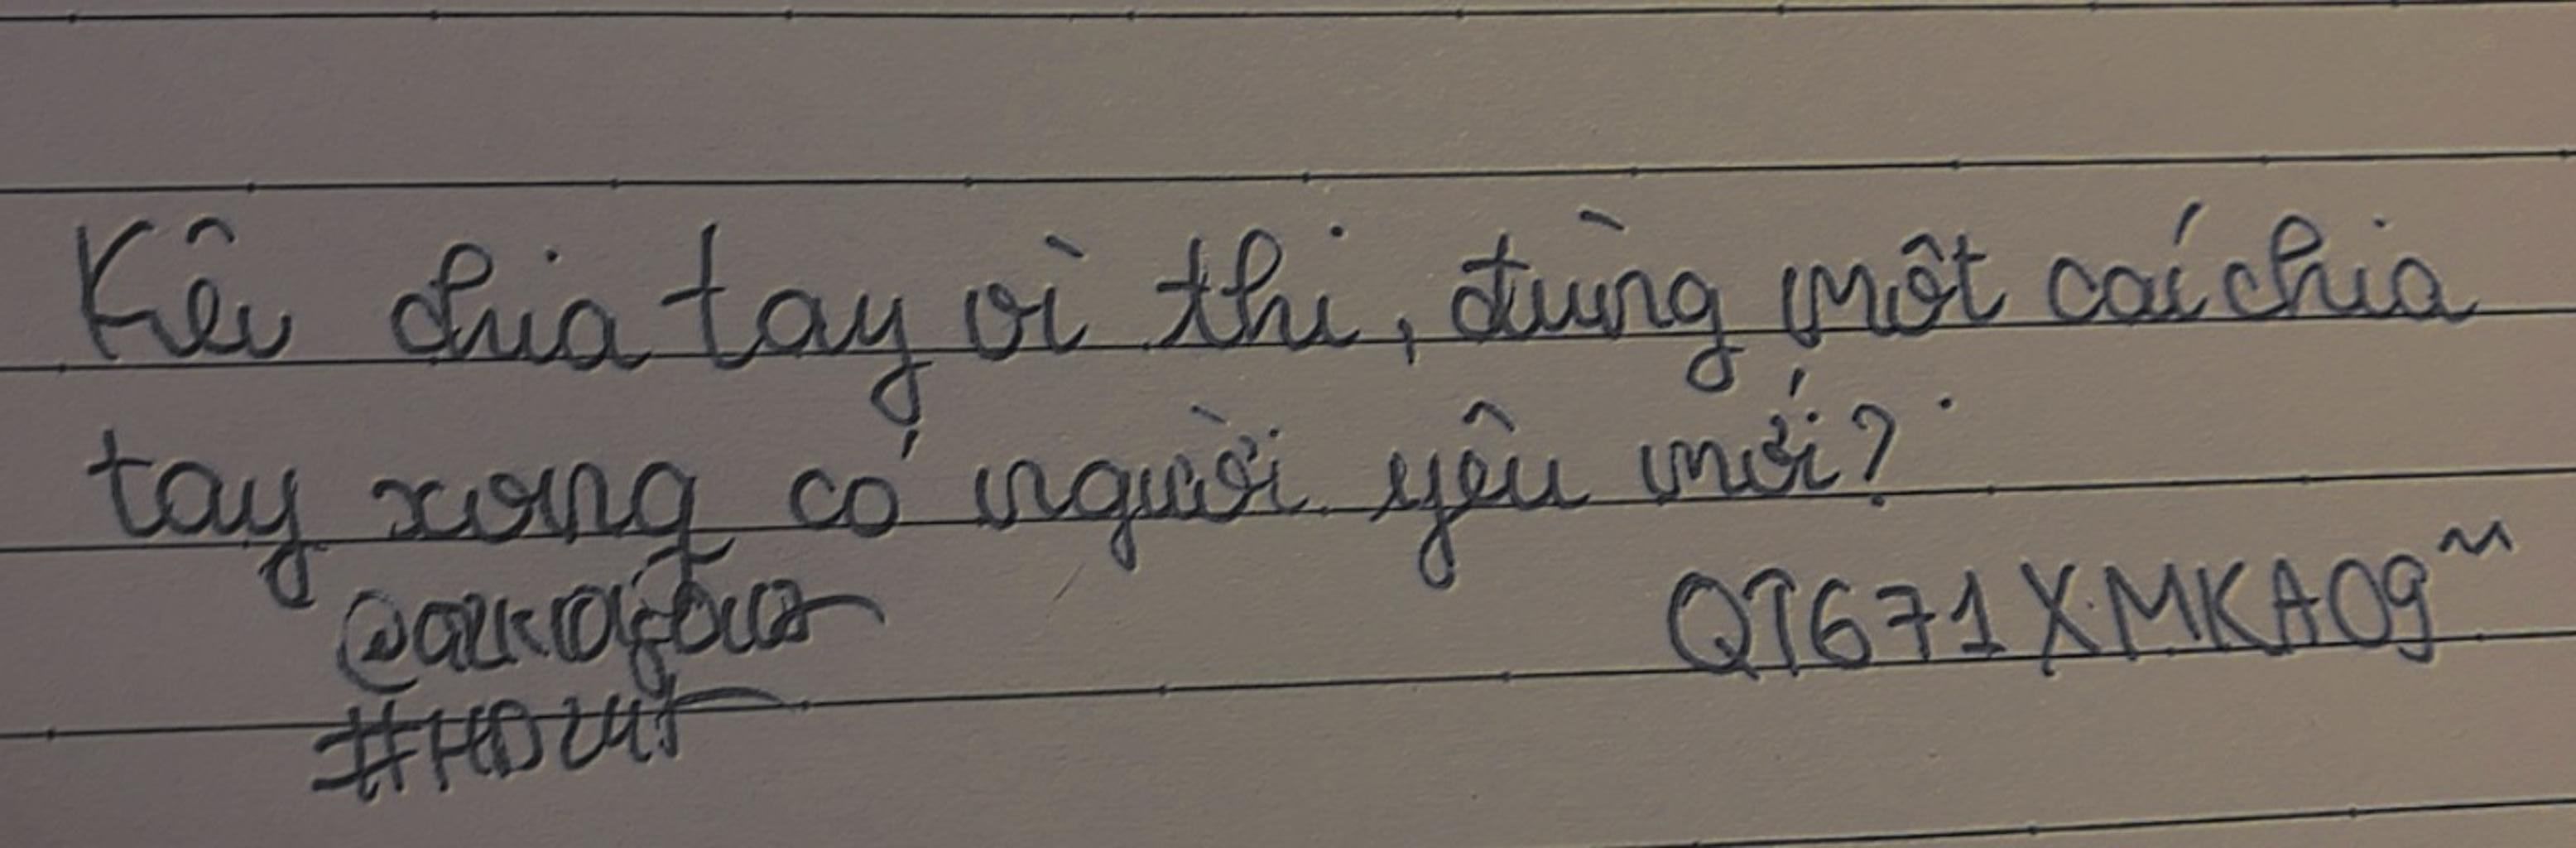 Kêu chia tay vì thi, đùng một cái chia
tay xong có người yêu mới?
QT671XMKA09~